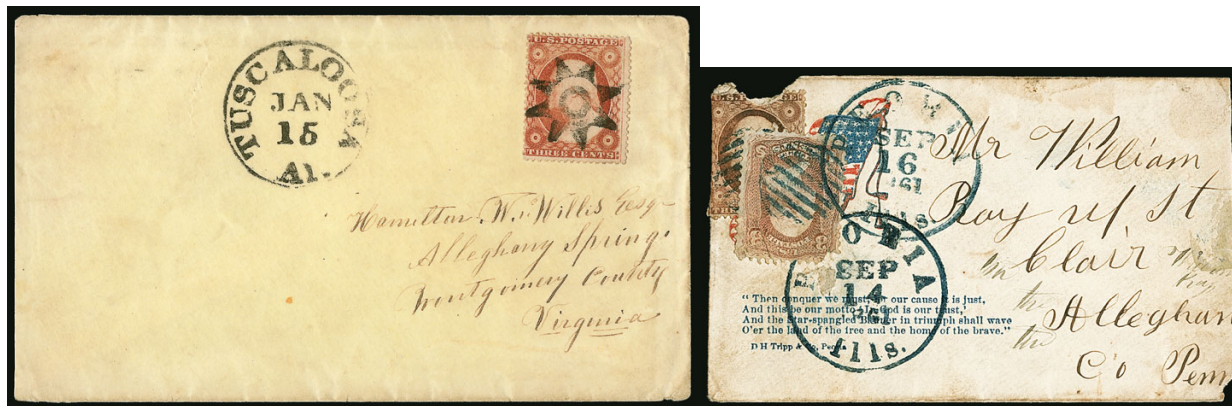 TUSCALOOSA
JAN
15
Al.
U.S. POSTAGE
THREE CENTS
Hamilton W. Willis Esq
Alleghany Springs
Montgomery County
Virginia
SEP
16
1861
Ills.
Mr William
Ray of St
Clair
Alleghany
Co Penn
PEORIA
SEP
14
Ills.
"Then conquer we must, for our cause it is just,
And this be our motto, 'In God is our trust,'
And the Star-spangled Banner in triumph shall wave
O'er the land of the free and the home of the brave."
D H Tripp & Co, Peoria